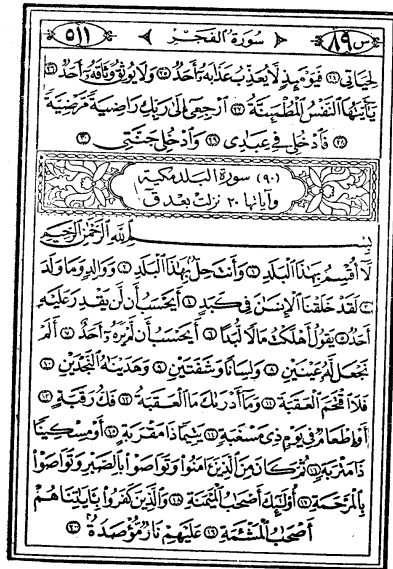 س ٨٩ سُورَةُ الفَجْرِ ٥١١
لِحَيَاتِى ٢٤ فَيَوْمَئِذٍ لَا يُعَذِّبُ عَذَابَهُ أَحَدٌ ٢٥ وَلَا يُوثِقُ وَثَاقَهُ أَحَدٌ ٢٦
يَا أَيَّتُهَا النَّفْسُ الْمُطْمَئِنَّةُ ٢٧ ارْجِعِى إِلَىٰ رَبِّكِ رَاضِيَةً مَرْضِيَّةً
٢٨ فَادْخُلِى فِى عِبَادِى ٢٩ وَادْخُلِى جَنَّتِى ٣٠
(٩٠) سورة البلد مكية
وآياتها ٢٠ نزلت بعد ق
بِسْمِ اللَّهِ الرَّحْمَٰنِ الرَّحِيمِ
لَا أُقْسِمُ بِهَٰذَا الْبَلَدِ ١ وَأَنْتَ حِلٌّ بِهَٰذَا الْبَلَدِ ٢ وَوَالِدٍ وَمَا وَلَدَ
٣ لَقَدْ خَلَقْنَا الْإِنْسَانَ فِى كَبَدٍ ٤ أَيَحْسَبُ أَنْ لَنْ يَقْدِرَ عَلَيْهِ
أَحَدٌ ٥ يَقُولُ أَهْلَكْتُ مَالًا لُبَدًا ٦ أَيَحْسَبُ أَنْ لَمْ يَرَهُ أَحَدٌ ٧ أَلَمْ
نَجْعَلْ لَهُ عَيْنَيْنِ ٨ وَلِسَانًا وَشَفَتَيْنِ ٩ وَهَدَيْنَاهُ النَّجْدَيْنِ ١٠
فَلَا اقْتَحَمَ الْعَقَبَةَ ١١ وَمَا أَدْرَاكَ مَا الْعَقَبَةُ ١٢ فَكُّ رَقَبَةٍ ١٣
أَوْ إِطْعَامٌ فِى يَوْمٍ ذِى مَسْغَبَةٍ ١٤ يَتِيمًا ذَا مَقْرَبَةٍ ١٥ أَوْ مِسْكِينًا
ذَا مَتْرَبَةٍ ١٦ ثُمَّ كَانَ مِنَ الَّذِينَ آمَنُوا وَتَوَاصَوْا بِالصَّبْرِ وَتَوَاصَوْا
بِالْمَرْحَمَةِ ١٧ أُولَٰئِكَ أَصْحَابُ الْمَيْمَنَةِ ١٨ وَالَّذِينَ كَفَرُوا بِآيَاتِنَا هُمْ
أَصْحَابُ الْمَشْئَمَةِ ١٩ عَلَيْهِمْ نَارٌ مُؤْصَدَةٌ ٢٠